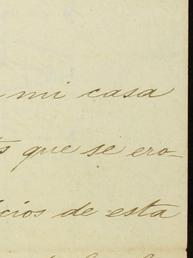 mi casa
s que se ero-
cios de esta